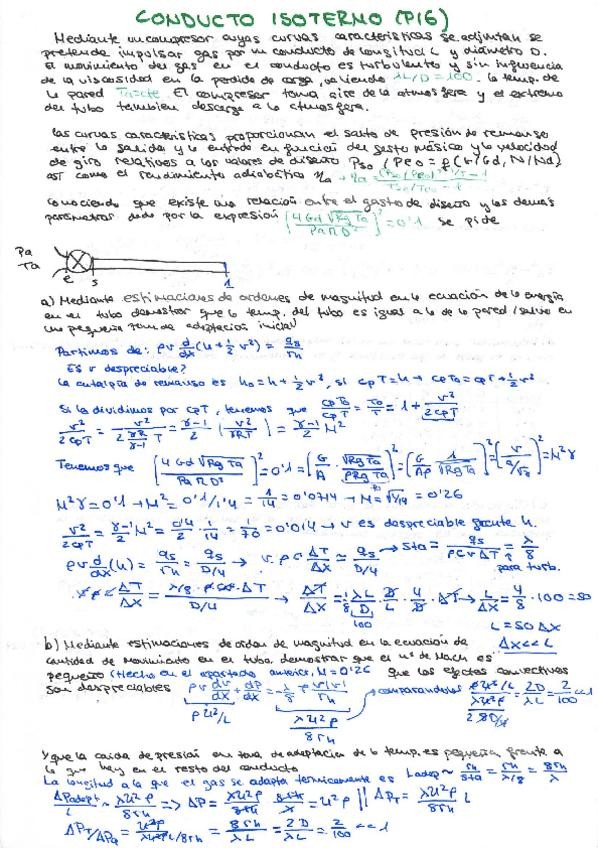 CONDUCTO ISOTERMO (P16)
Mediante un compresor cuyas curvas características se adjuntan se
pretende impulsar gas por un conducto de longitud L y diámetro D.
El movimiento del gas en el conducto es turbulento y sin influencia
de la viscosidad en la perdida de carga, valiendo λL/D = 100. la temp. de
la pared Ta=cte. El compresor toma aire de la atmosfera y el extremo
del tubo tambien descarga a la atmosfera.
las curvas caracteristicas proporcionan el salto de presión de remanso
entre la salida y la entrada en función del gasto másico y la velocidad
de giro relativos a los valores de diseño Pso/Peo = f(G/Gd, N/Nd)
así como el rendimiento adiabático ηa → ηa = ((Pso/Peo)^(γ-1)/γ - 1)/(Tso/Teo - 1)
Conociendo que existe una relación entre el gasto de diseño y los demás
parametros dada por la expresión (4Gd√RgTa/PaπD²)² = 0'1 se pide
Pa
Ta
e s 1
a) Mediante estimaciones de ordenes de magnitud en la ecuación de la energía
en el tubo demostrar que la temp. del tubo es igual a la de la pared (salvo en
una pequeña zona de adaptación inicial)
Partimos de: ρv d/dx (h + 1/2 v²) = qs/rh
Es v despreciable?
la entalpía de remanso es h₀ = h + 1/2 v², si cpT = h → cpT₀ = cpT + 1/2 v²
Si la dividimos por cpT, tenemos que cpT₀/cpT = T₀/T = 1 + v²/2cpT
v²/2cpT = v²/(2 γR/(γ-1) T) = γ-1/2 (v²/γRT) = γ-1/2 M²
Tenemos que (4Gd√RgTa/PaπD²)² = 0'1 = (G/A · √RgTa/ρRgTa)² = (G/Aρ · 1/√RgTa)² = (v/(a/√γ))² = M²γ
M²γ = 0'1 → M² = 0'1/1'4 = 1/14 = 0'0714 → M = √1/14 = 0'26
v²/2cpT = γ-1/2 M² = 0'4/2 · 1/14 = 1/70 = 0'014 → v es despreciable frente h.
ρv d/dx (h) = qs/rh = qs/D/4 → v·ρc ΔT/Δx = qs/D/4 → Sta = qs/ρcvΔT = λ/8
para turb.
vρc ΔT/Δx = λ/8 · ρcv · ΔT/D/4 → ΔT/Δx = 1/8 λL/D · D/L · 4/D · ΔT → L/Δx = 4/8 · 100 = 50
100
L = 50Δx
Δx << L
b) Mediante estimaciones de orden de magnitud en la ecuación de
cantidad de movimiento en el tubo, demostrar que el nº de Mach es
pequeño (Hecho en el apartado anterior, M = 0'26 que los efectos convectivos
son despreciables ρv dv/dx + dp/dx = -λ/8 ρv|v|/rh
comparandolos ρu²/L / λu²ρ/2D = 2D/λL = 2/100 <<1
ρu²/L
λu²ρ/8rh
Y que la caida de presión en zona de adaptacion de la temp. es pequeña frente a
la que hay en el resto del conducto
La longitud a la que el gas se adapta termicamente es Ladap ~ rh/sta = rh/λ/8 = 8rh/λ
ΔPadapt ~ λu²ρ/8rh => ΔP = λu²ρ/8rh · 8rh/λ = u²ρ || ΔPT = λu²ρ/8rh L
ΔPT/ΔPa = u²ρ/λu²ρL/8rh = 8rh/λL = 2D/λL = 2/100 <<1